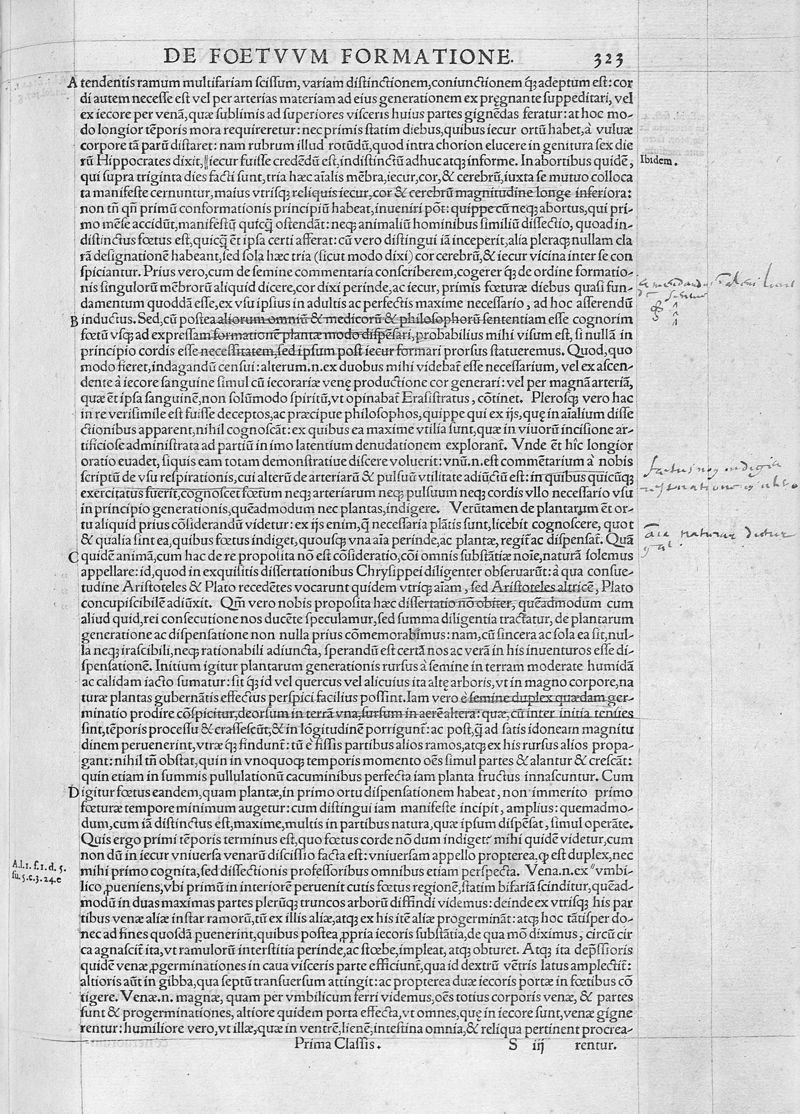 DE FOETVVM FORMATIONE. 323
A tendentis ramum multifariam scissum, variam distinctionem, coniunctionem q́; adeptum est: cor
di autem necesse est vel per arterias materiam ad eius generationem ex pręgnante suppeditari, vel
ex iecore per venā, quæ sublimis ad superiores visceris huius partes gignēdas feratur: at hoc mo-
do longior tēporis mora requireretur: nec primis statim diebus, quibus iecur ortū habet, à vuluæ
corpore tā parū distaret: nam rubrum illud rotūdū, quod intra chorion elucere in genitura sex die
rū Hippocrates dixit, iecur fuisse credēdū est, indistinctū adhuc atq; informe. In abortibus quidē,
Ibidem.
qui supra triginta dies facti sunt, tria hæc aīalis mēbra, iecur, cor, & cerebrū, iuxta se mutuo colloca
ta manifeste cernuntur, maius vtrisq; reliquis iecur, cor & cerebrū magnitudine longe inferiora:
non tñ qñ primū conformationis principiū habeat, inueniri pōt: quippe cū neq; abortus, qui pri-
mo mēse accidūt, manifestū quicq̄ ostendāt: neq; animaliū hominibus similiū dissectio, quoad in-
distinctus fœtus est, quicq̄ ēt ipsa certi afferat: cū vero distingui iā inceperit, alia pleraq; nullam cla
rā designationē habeant, sed sola hæc tria (sicut modo dixi) cor cerebrū, & iecur vicina inter se con
spiciantur. Prius vero, cum de semine commentaria conscriberem, cogerer q́; de ordine formatio-
nis singulorū mēbrorū aliquid dicere, cor dixi perinde, ac iecur, primis fœturæ diebus quasi fun-
damentum quoddā esse, ex vsu ipsius in adultis ac perfectis maxime necessario, ad hoc asserendū
B inductus. Sed, cū postea aliorum omniū & medicorū & philosophorū sententiam esse cognorim
fœtū vsq; ad expressam formationē plantæ modo dispēsari, probabilius mihi visum est, si nullā in
principio cordis esse necessitatem, sed ipsum post iecur formari prorsus statueremus. Quod, quo
modo fieret, indagandū censui: alterum .n. ex duobus mihi videbat̄ esse necessarium, vel ex ascen-
dente à iecore sanguine simul cū iecorariæ venę productione cor generari: vel per magnā arteriā,
quæ ēt ipsa sanguinē, non solūmodo spiritū, vt opinabat̄ Erasistratus, cōtinet. Plerosq; vero hac
in re verisimile est fuisse deceptos, ac præcipue philosophos, quippe qui ex ijs, quę in aīalium disse
ctionibus apparent, nihil cognoscāt: ex quibus ea maxime vtilia sunt, quæ in viuorū incisione ar-
tificiose administrata ad partiū in imo latentium denudationem explorant̄. Vnde ēt hīc longior
oratio euadet, siquis eam totam demonstratiue discere voluerit: vnū .n. est commētarium à nobis
scriptū de vsu respirationis, cui alterū de arteriarū & pulsuū vtilitate adiūctū est: in quibus quicūq;
exercitatus fuerit, cognoscet fœtum neq; arteriarum neq; pulsuum neq; cordis vllo necessario vsu
in principio generationis, quēadmodum nec plantas, indigere. Verūtamen de plantarum ēt or-
tu aliquid prius cōsiderandū videtur: ex ijs enim, q̄ necessaria plātis sunt, licebit cognoscere, quot
& qualia sint ea, quibus fœtus indiget, quousq; vna aīa perinde, ac plantæ, regit̄ ac dispensat̄. Quā
C quidē animā, cum hac de re proposita nō est cōsideratio, cōi omnis substātiæ noīe, naturā solemus
appellare: id, quod in exquisitis dissertationibus Chrysippei diligenter obseruarūt: à qua consue-
tudine Aristoteles & Plato recedētes vocarunt quidem vtriq; aīam, sed Aristoteles altricē, Plato
concupiscibilē adiūxit. Qm̄ vero nobis proposita hæc dissertatio nō obiter, quēadmodum cum
aliud quid, rei consecutione nos ducēte speculamur, sed summa diligentia tractatur, de plantarum
generatione ac dispensatione non nulla prius cōmemorabimus: nam, cū sincera ac sola ea sit, nul-
la neq; irascibili, neq; rationabili adiuncta, sperandū est certā nos ac verā in his inuenturos esse di-
spensationē. Initium igitur plantarum generationis rursus à semine in terram moderate humidā
ac calidam iacto sumatur: sit q́; id vel quercus vel alicuius ita altę arboris, vt in magno corpore, na
turæ plantas gubernātis effectus perspici facilius possint. Iam vero è semine duplex quædam ger-
minatio prodire cōspicitur, deorsum in terrā vna, sursum in aerē altera: quæ, cū inter initia tenues
sint, tēporis processu & crassescūt, & in lōgitudinē porrigunt̄: ac post, q̄ ad satis idoneam magnitu
dinem peruenerint, vtræq́; findunt̄: tū ē fissis partibus alios ramos, atq; ex his rursus alios propa-
gant: nihil tñ obstat, quin in vnoquoq; temporis momento oēs simul partes & alantur & crescāt:
quin etiam in summis pullulationū cacuminibus perfecta iam planta fructus innascuntur. Cum
D igitur fœtus eandem, quam plantæ, in primo ortu dispensationem habeat, non immerito primo
fœturæ tempore minimum augetur: cum distingui iam manifeste incipit, amplius: quemadmo-
dum, cum iā distinctus est, maxime, multis in partibus natura, quæ ipsum dispēsat, simul operāte.
Quis ergo primi tēporis terminus est, quo fœtus corde nō dum indiget? mihi quidē videtur, cum
non dū in iecur vniuersa venarū discissio facta est: vniuersam appello propterea, q̄ est duplex, nec
A.l.1.f.1.d.5.
su.5.c.3.24.e
mihi primo cognita, sed dissectionis professoribus omnibus etiam perspecta. Vena .n. ex vmbi-
lico, pueniens, vbi primū in interiorē peruenit cutis fœtus regionē, statim bifariā scinditur, quēad-
modū in duas maximas partes plerūq; truncos arborū diffindi videmus: deinde ex vtrisq; his par
tibus venæ aliæ instar ramorū, tū ex illis aliæ, atq; ex his itē aliæ progermināt: atq; hoc tātisper do-
nec ad fines quosdā puenerint, quibus postea ppria iecoris substātia, de qua mō diximus, circū cir
ca agnascit̄ ita, vt ramulorū interstitia perinde, ac stœbe, impleat, atq; obturet. Atq; ita dep̄ssioris
quidē venæ, pgerminationes in caua visceris parte efficiunt̄, qua id dextrū vētris latus amplectit̄:
altioris aūt in gibba, qua septū transuersum attingit: ac propterea duæ iecoris portæ in fœtibus cō
tigere. Venæ .n. magnæ, quam per vmbilicum ferri videmus, oēs totius corporis venæ, & partes
sunt & progerminationes, altiore quidem porta effecta, vt omnes, quę in iecore sunt, venæ gigne
rentur: humiliore vero, vt illæ, quæ in ventrē, lienē, intestina omnia, & reliqua pertinent procrea-
Prima Classis. S iij rentur.